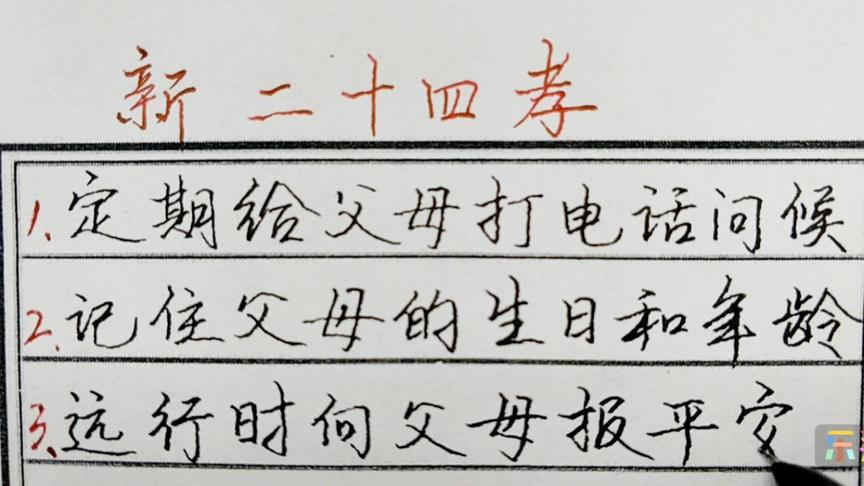 新二十四孝
1、定期给父母打电话问候
2、记住父母的生日和年龄
3、远行时向父母报平安